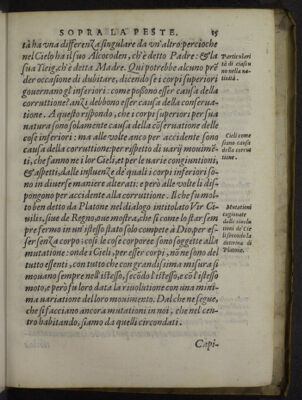 SOPRA LA PESTE. 15
tà ha vna differenza singulare da vn'altro percioche
nel Cielo ha il suo Alcocoden, ch'è detto Padre: & la
sua Yleig, ch'è detta Madre. Qui potrebbe alcuno prē
der occasione di dubitare, dicendo se i corpi superiori
gouernano gl'inferiori: come possono esser causa della
corruttione? anzi debbono esser causa della conserua-
tione. A questo rispondo, che i corpi superiori per sua
natura sono solamente causa della cōseruatione delle
cose inferiori: ma alle volte anco per accidente sono
causa della corruttione: per rispetto di uarij mouimē-
ti, che fanno ne i lor Cieli, et per le uarie congiuntioni,
& aspetti, dalle influenze de' quali i corpi inferiori so-
no in diuerse maniere alterati: e però alle volte li dis-
pongono per accidente alla corruttione. Il che fu mol-
to ben detto da Platone nel dialogo intitolato Vir Ci-
uilis, siue de Regno, oue mostra, che sì come lo star sem
pre fermo in vn'istesso stato solo compete à Dio, per es-
ser senza corpo: così le cose corporee sono soggette alla
mutatione: onde i Cieli, per esser corpi, nō ne sono del
tutto essenti, con tutto che con grandissima misura si
mouano sempre nell'istesso, secōdo l'istesso, e cō l'istesso
moto, e però fu loro data la riuolutione con vna mini-
ma variatione del loro mouimento. Dal che ne segue,
che si facciano ancora mutationi in noi, che nel cen-
tro habitando, siamo da quelli circondati.
Capi-
Particulari
tà di ciascu
no nella na-
tiuità.
Cieli come
causa della
corrut
tione.
Mutationi
cagionate
dalle riuolu
tioni de' Cie
li secondo la
dottrina di
Platone.